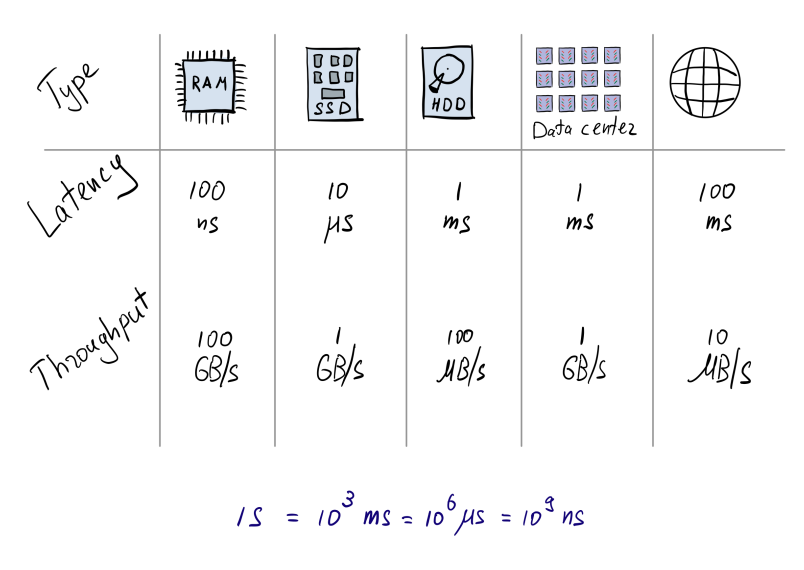 Type
RAM
SSD
HDD
Data center
Latency
100 ns
10 μs
1 ms
1 ms
100 ms
Throughput
100 GB/s
1 GB/s
100 MB/s
1 GB/s
10 MB/s
1S = 10³ ms = 10⁶ μs = 10⁹ ns